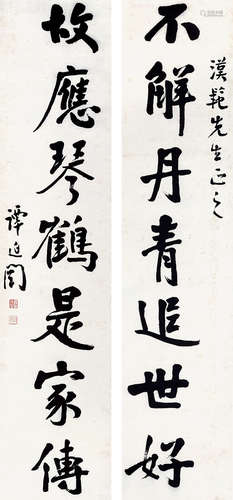 不解丹青追世好
漢範先生正之
故應琴鶴是家傳
譚延闓